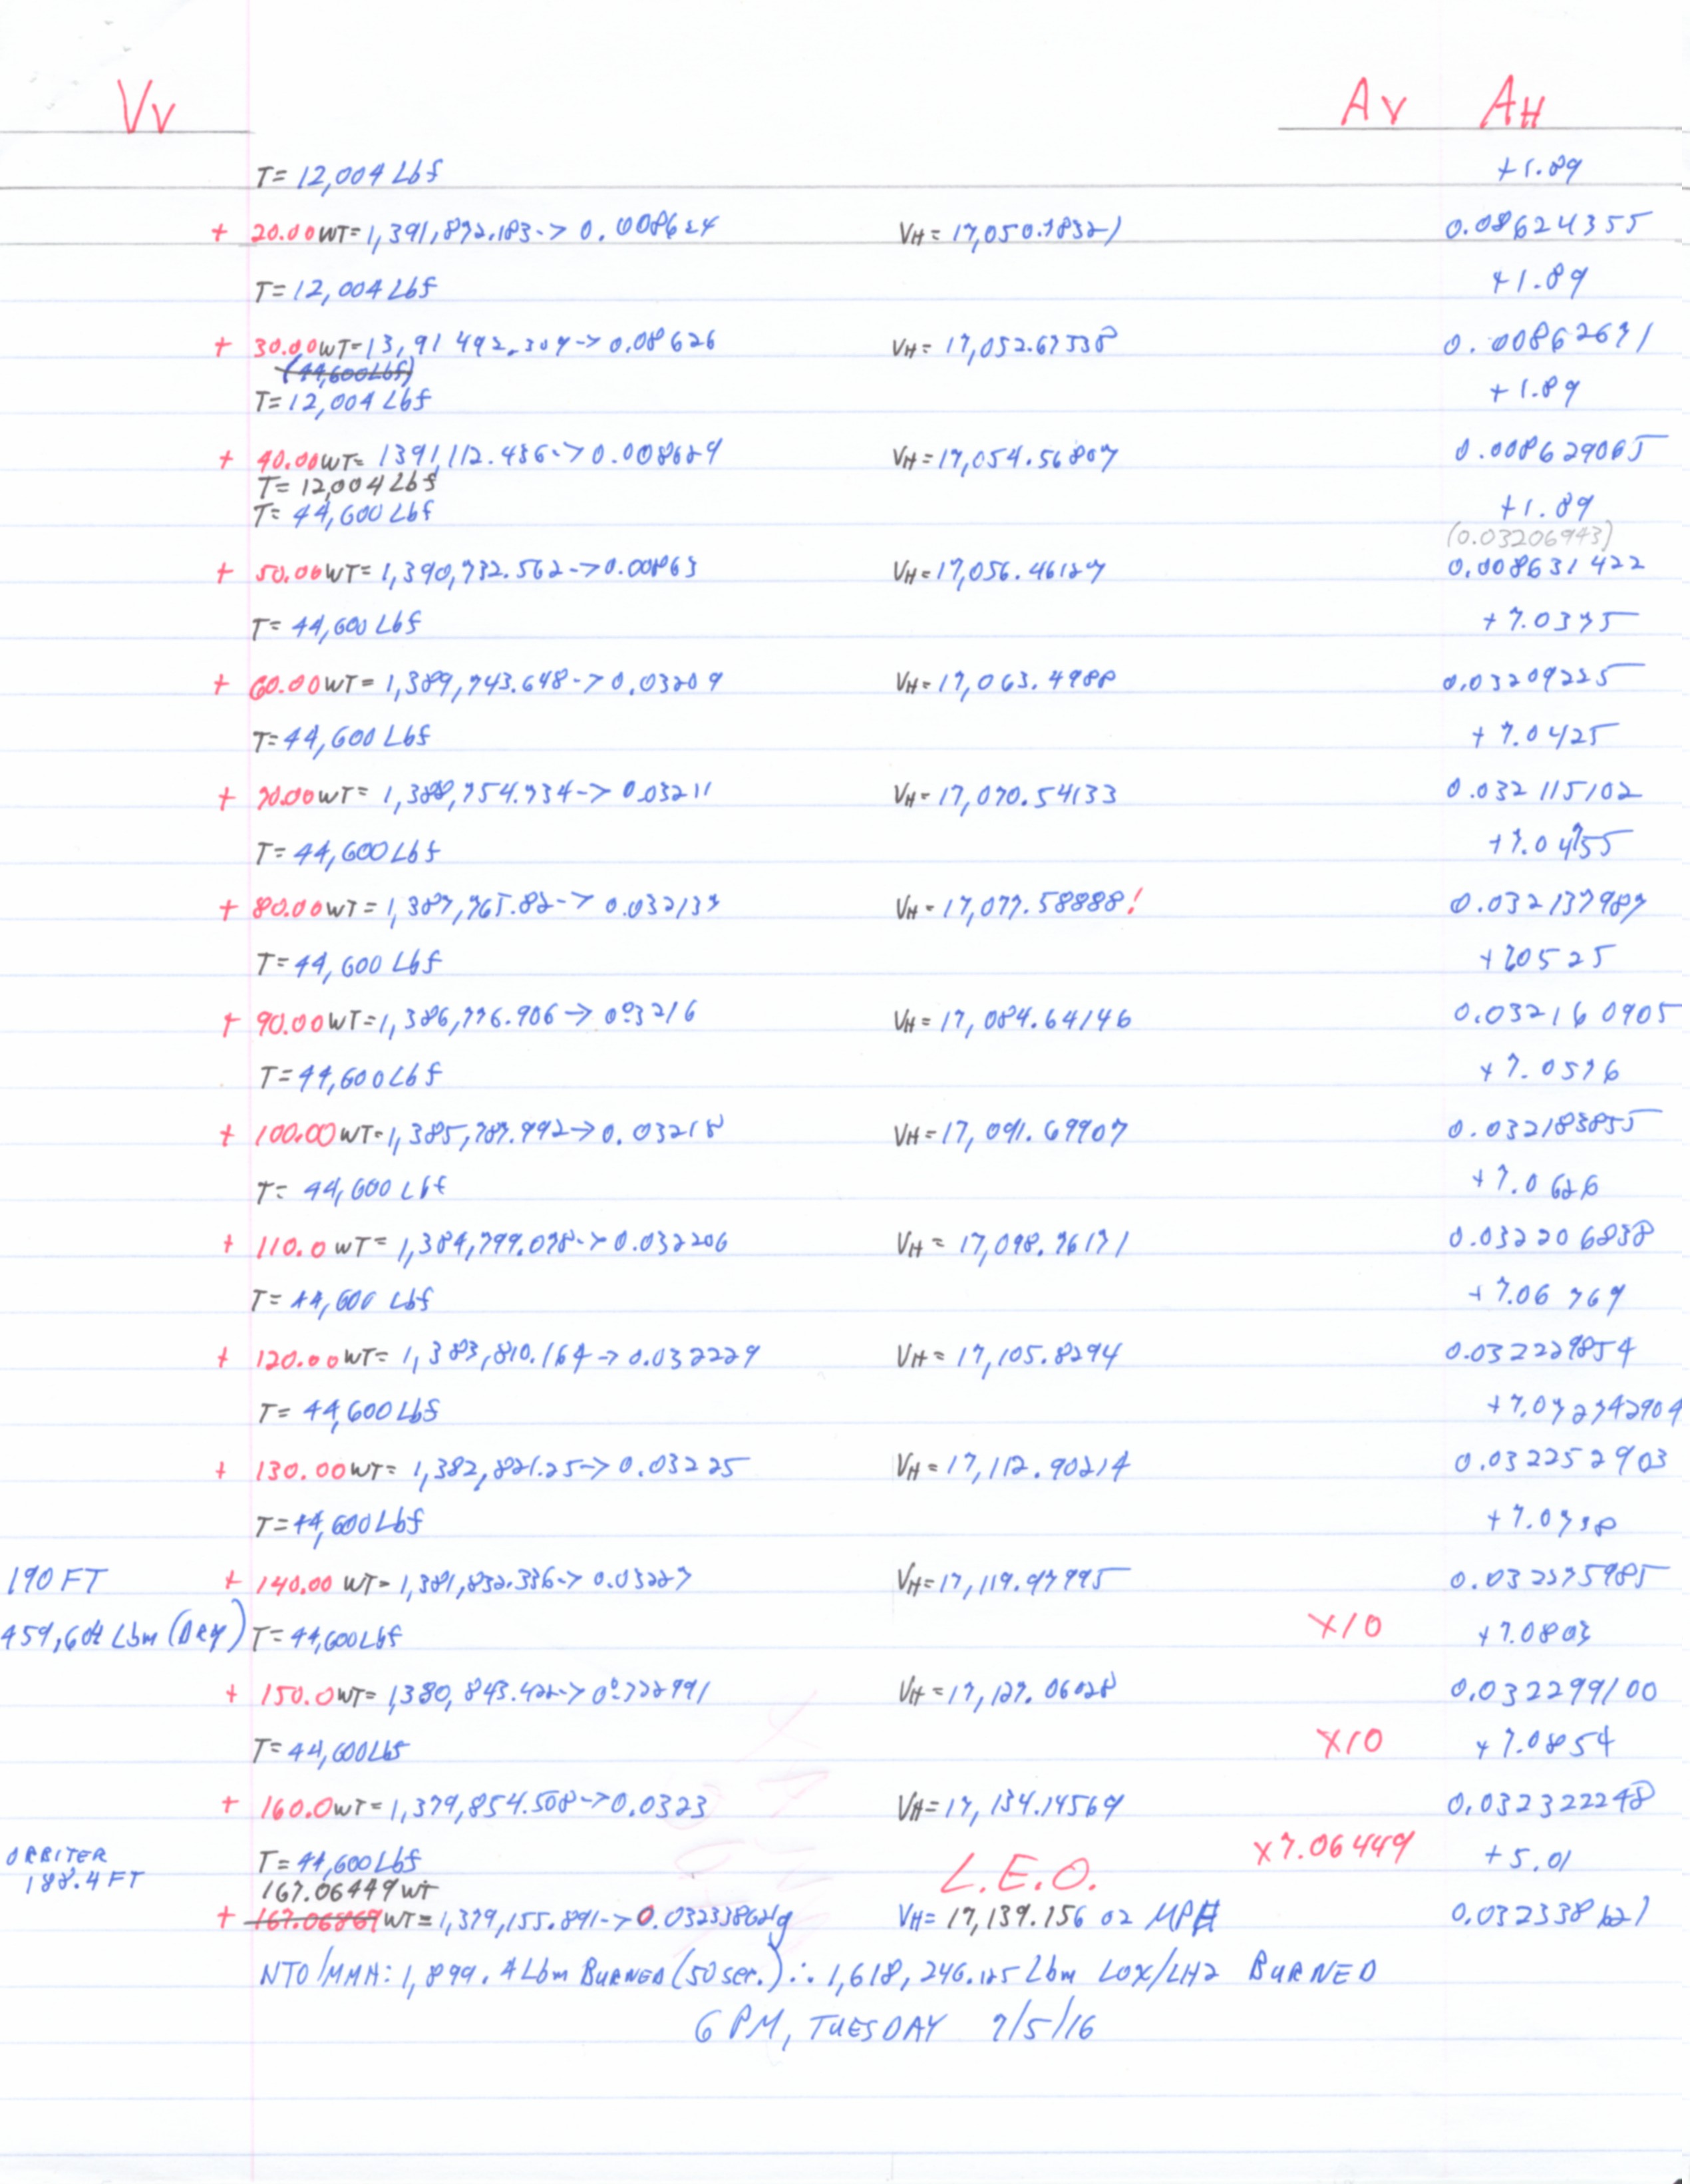 Vv Av AH
T= 12,004 Lbf +1.89
+ 20.00WT= 1,391,872.183-> 0.008624 VH= 17,050.78321 0.08624355
T= 12,004 Lbf +1.89
+ 30.00WT=13,91 492.309-> 0.08626 VH= 17,052.67538 0.00862671
(44,600Lbf)
T= 12,004 Lbf +1.89
+ 40.00WT= 1391,112.436-> 0.008629 VH= 17,054.56807 0.008629065
T= 12,004 Lbf
T= 44,600 Lbf +1.89
(0.03206943)
+ 50.00WT= 1,390,732.562->0.00863 VH= 17,056.46127 0.008631422
T= 44,600 Lbf +7.0375
+ 60.00WT= 1,389,743.648-> 0.03209 VH= 17,063.4988 0.03209225
T= 44,600 Lbf +7.0425
+ 70.00WT= 1,388,754.734-> 0.03211 VH= 17,070.54133 0.032 115102
T= 44,600 Lbf
+ 80.00WT= 1,387,765.82-> 0.032137 VH= 17,077.58888! 0.032137987
T= 44,600 Lbf
+ 90.00WT=1,386,776.906 -> 0.03216 VH= 17,084.64146 0.032160905
T= 44,600 Lbf +7.0576
+ 100.00WT=1,385,787.992-> 0.03218 VH= 17,091.69907 0.032183855
T= 44,600 Lbf +7.0626
+ 110.0 WT= 1,384,799.078-> 0.032206 VH= 17,098.76171 0.032206838
T= 44,600 Lbf +7.06769
+ 120.00WT= 1,383,810.164-> 0.032229 VH= 17,105.8294 0.032229854
T= 44,600 Lbf +7.072742904
+ 130.00WT= 1,382,821.25-> 0.03225 VH= 17,112.90214 0.032252903
T= 44,600 Lbf +7.0778
190 FT + 140.00 WT= 1,381,832.336-> 0.03227 VH= 17,119.97995 0.032275985
459,604 Lbm (DRY) T= 44,600Lbf X10 +7.0803
+ 150.0WT= 1,380,843.422-> VH= 17,127.06028 0.032299100
T= 44,600Lbf X10 +7.0854
+ 160.0WT= 1,379,854.508->0.0323 VH= 17,134.14569 0.032322248
ORBITER T= 44,600Lbf L.E.O. X7.06449 +5.01
188.4 FT 167.06449WT
+ 167.06869WT= 1,379,155.891-> 0.032338621g VH= 17,139.156 02 MPH 0.032338621
NTO/MMH: 1,899.4 Lbm BURNED (50 sec.) ∴ 1,618,246.125 Lbm LOX/LH2 BURNED
6 PM, TUESDAY 7/5/16